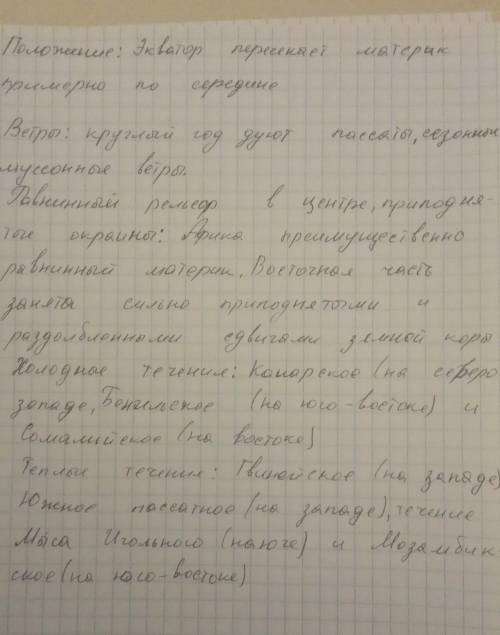 Положение: Экватор пересекает материк
примерно по середине
Ветры: круглый год дуют пассаты, сезонные
муссонные ветры.
Равнинный рельеф в центре, приподня-
тые окраины: Африка преимущественно
равнинный материк. Восточная часть
занята сильно приподнятыми и
раздолбленными сдвигами земной коры
Холодные течения: Канарское (на северо
западе, Бенгильское (на юго-востоке) и
Сомалийское (на востоке)
Теплые течения: Гвинейское (на западе)
Южное пассатное (на западе), течение
Мыса Игольного (на юге) и Мозамбик-
ское (на юго-востоке)